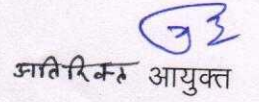 अतिरिक्त आयुक्त